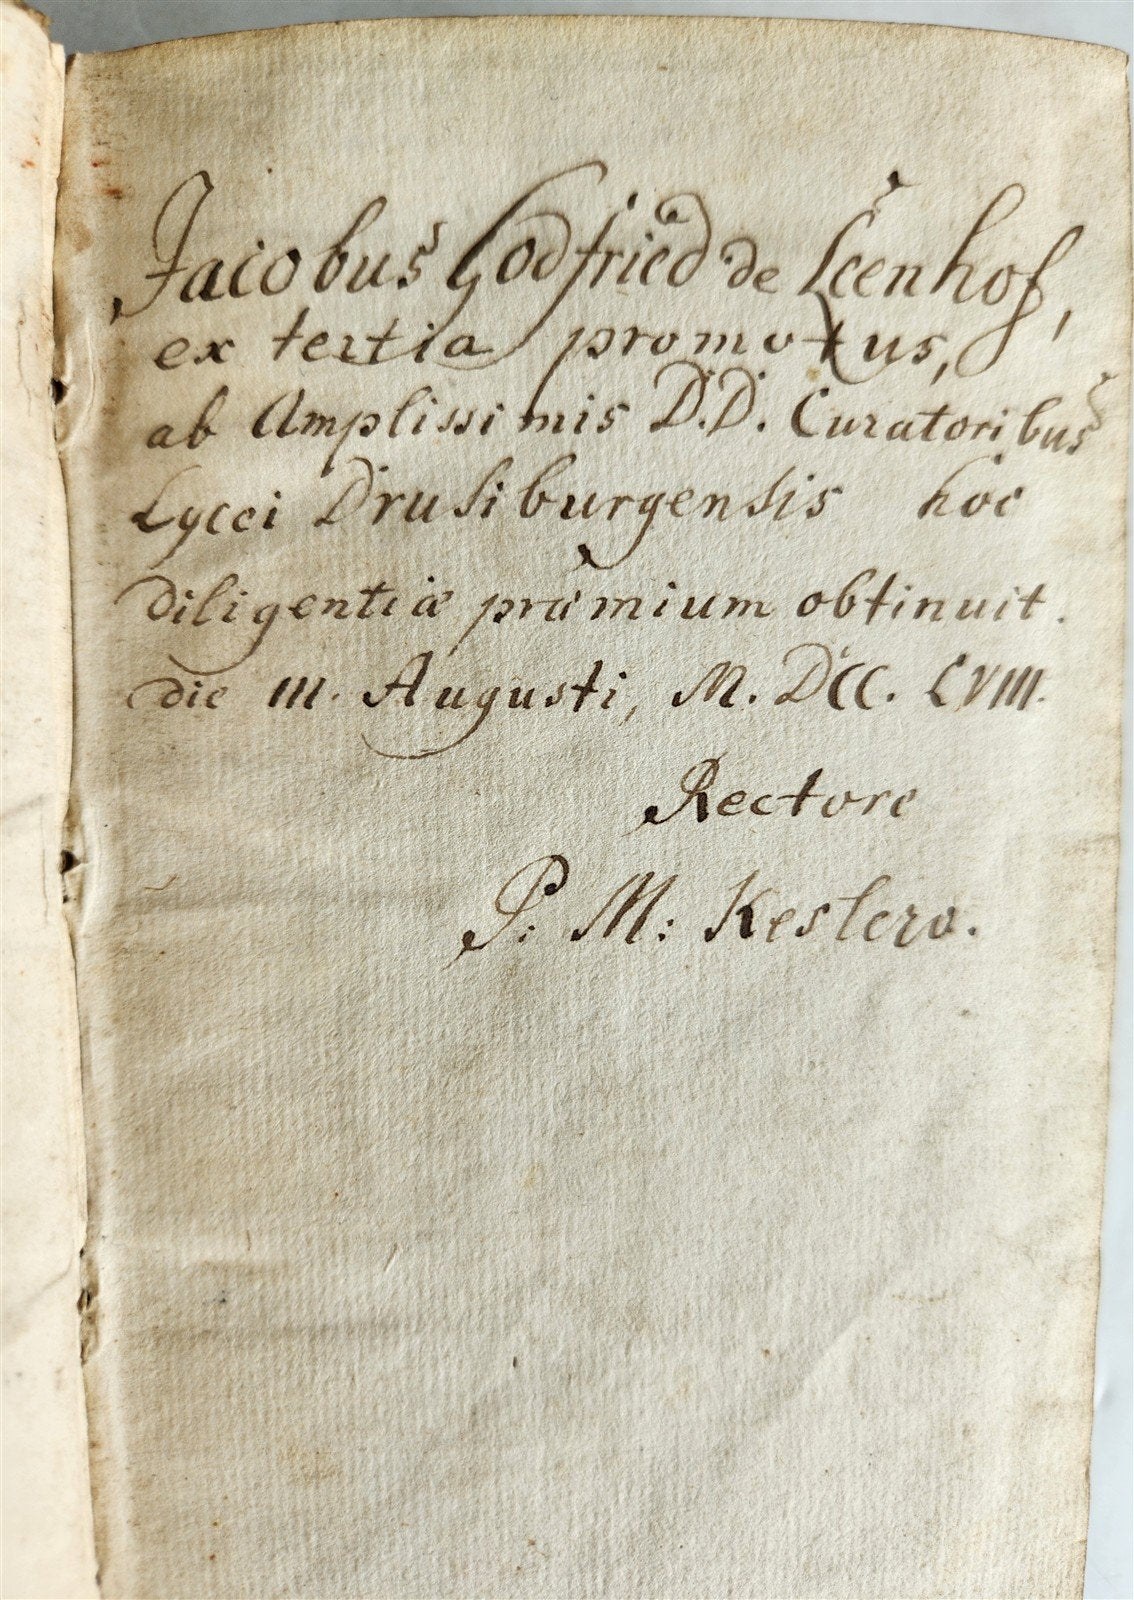 Jacobus Godfried de Leenhof,
ex tertia promotus,
ab Amplissimis D.D. Curatoribus
Lycei Drusiburgensis hoc
diligentiæ præmium obtinuit.
die III. Augusti, M. DCC. LVIII.
Rectore
P: M: Keslero.